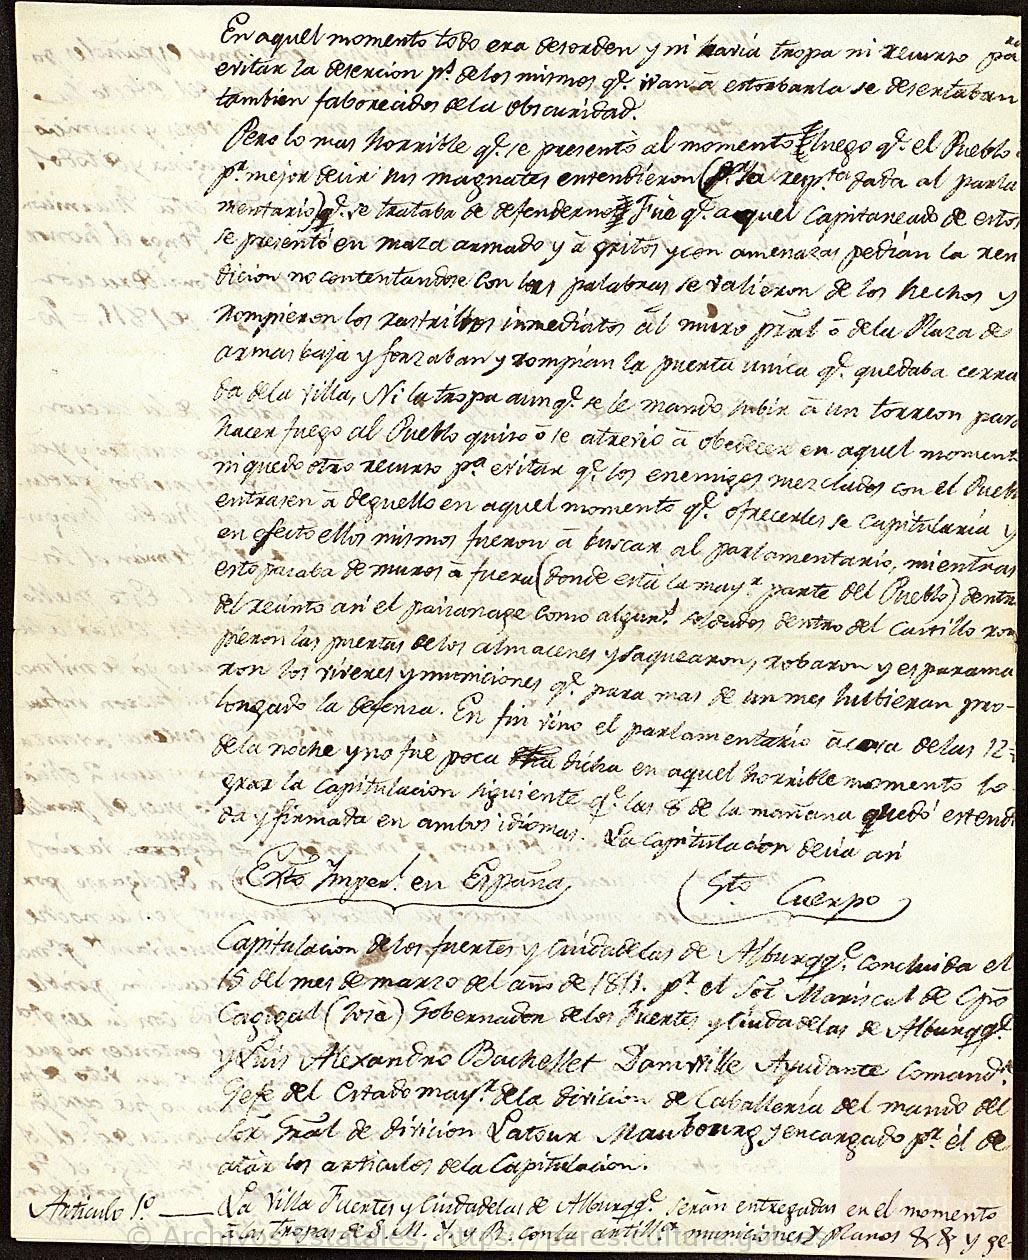 En aquel momento todo era desorden y ni havia tropa ni recurso pa
evitar la desercion ps. de los mismos q.e ivan á estorbarla se desertaban
tambien faborecidos de la obscuridad.
Pero lo mas horrible q.e se presentó al momento luego q.e el Pueblo
p.r mejor decir sus magnates entendieron (p.r la resp.ta dada al parla
mentario) q.e se trataba de defendernos Fue q.e aquel Capitaneado de estos
se presentó en maza armado y á gritos y con amenazas pedian la ren
dicion no contentandose con las palabras se valieron de los hechos y
rompieron los rastrillos inmediatos ál muro pral ó de la Plaza de
armas baja y forzaban y rompian la puerta unica q.e quedaba cerra
da de la villa, Ni la tropa aunq.e se le mandó subir á un torreon para
hacer fuego al Pueblo quiso ó se atrevio á obedecer en aquel moment
ni quedo otro recurso p.a evitar q.e los enemigos mezclados con el Puebl
entrasen á deguello en aquel momento q.e ofrecerles se Capitularia y
en efecto ellos mismos fueron á buscar al parlamentario, mientras
esto pasaba de muros á fuera (donde está la may.r parte del Pueblo) dentr
del recinto asi el paisanage como algun.s soldados dentro del Castillo rom
pieron las puertas de los almacenes y saquearon, robaron y esparama
ron los viveres y municiones q.e para mas de un mes hubieran pro-
longado la defensa. En fin vino el parlamentario á cosa de las 12=
de la noche y no fué poca dicha en aquel horrible momento lo-
grar la Capitulacion siguiente q.e las 8 de la mañana quedó estendi
da y firmada en ambos idiomas. La Capitulación decia asi
Exto Imper.l en España,
5to. Cuerpo
Capitulacion de los fuertes y Ciudadelas de Alburqq.e concluida el
15 del mes de marzo del año de 1811. p.r el Sor Mariscal de Cpo
Cagigal (José) Gobernador de los Fuertes y Ciudadelas de Alburqq.e
y Luis Alexandro Bachellet Damville Ayudante Comand.te
Gefe del Estado may.r de la división de Caballería del mando del
Sor Gral de división Latour Maubourg y encargado p.r él de
atár los articulos de la Capitulación.
Articulo 1º. — La Villa Fuertes y Ciudadelas de Alburqq.e serán entregadas en el momento
á las tropas de S. M. Y. y R. con la artill.a municiones y Planos &c &c y ge-
© Archivos Estatales, https://pares.cultura.gob.es